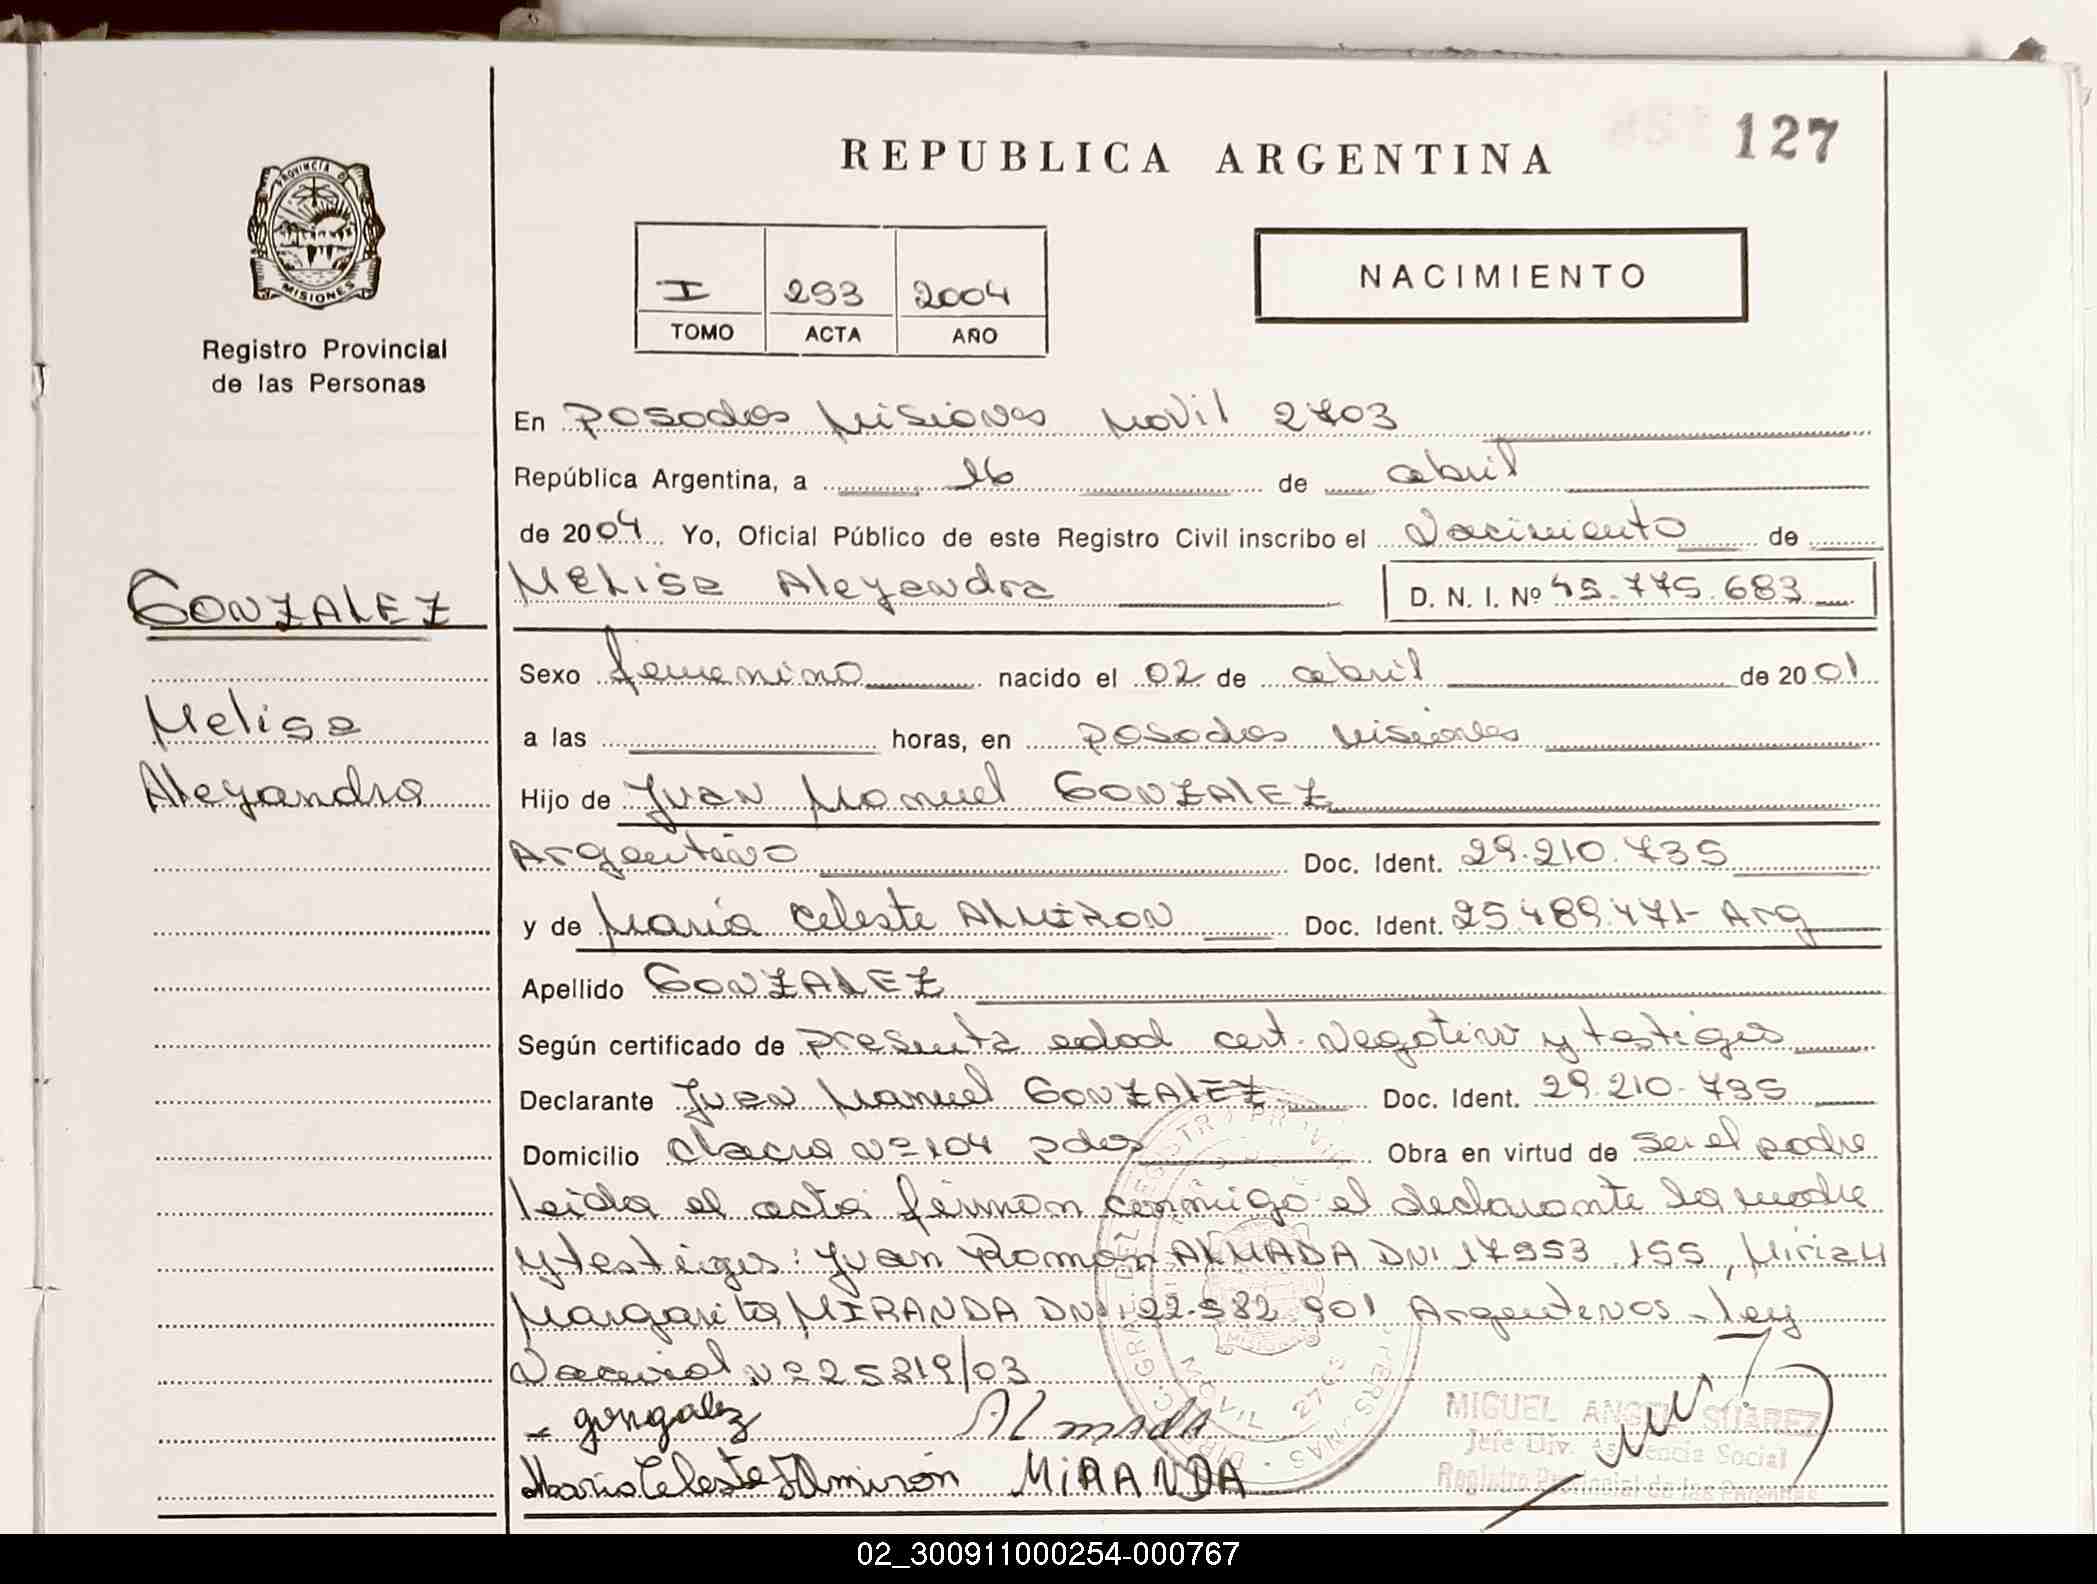 REPUBLICA ARGENTINA
127
PROVINCIA DE
MISIONES
Registro Provincial
de las Personas
I 293 2004
TOMO ACTA AÑO
NACIMIENTO
En posadas Misiones Movil 2703
República Argentina, a 16 de abril
de 2004 Yo, Oficial Público de este Registro Civil inscribo el Nacimiento de
GONZALEZ
Melisa Alejandra
MELisa Alejandra D. N. I. Nº 45.775.683
Sexo femenino nacido el 02 de abril de 2001
a las horas, en posadas Misiones
Hijo de Juan Manuel GONZALEZ
Argentino Doc. Ident. 29.210.735
y de María Celeste ALMIRON Doc. Ident. 25.489.471- Arg
Apellido GONZALEZ
Según certificado de presunta edad cert. Negativo y testigos
Declarante Juan Manuel GONZALEZ Doc. Ident. 29.210.735
Domicilio chacra Nº 104 pdas Obra en virtud de ser el padre
leida el acta firman conmigo el declarante la madre
y testigos: Juan Ramon ALMADA DNI 17.953.155, Miriam
Margarita MIRANDA DNI 22.982.901 Argentinos - Ley
Nacional Nº 25819/03
gonzalez Almada
Maria Celeste Almirón MiRANDA
MIGUEL ANGEL SUAREZ
Jefe Div. Asistencia Social
Registro Provincial de las Personas
MOVIL 2703
02_300911000254-000767